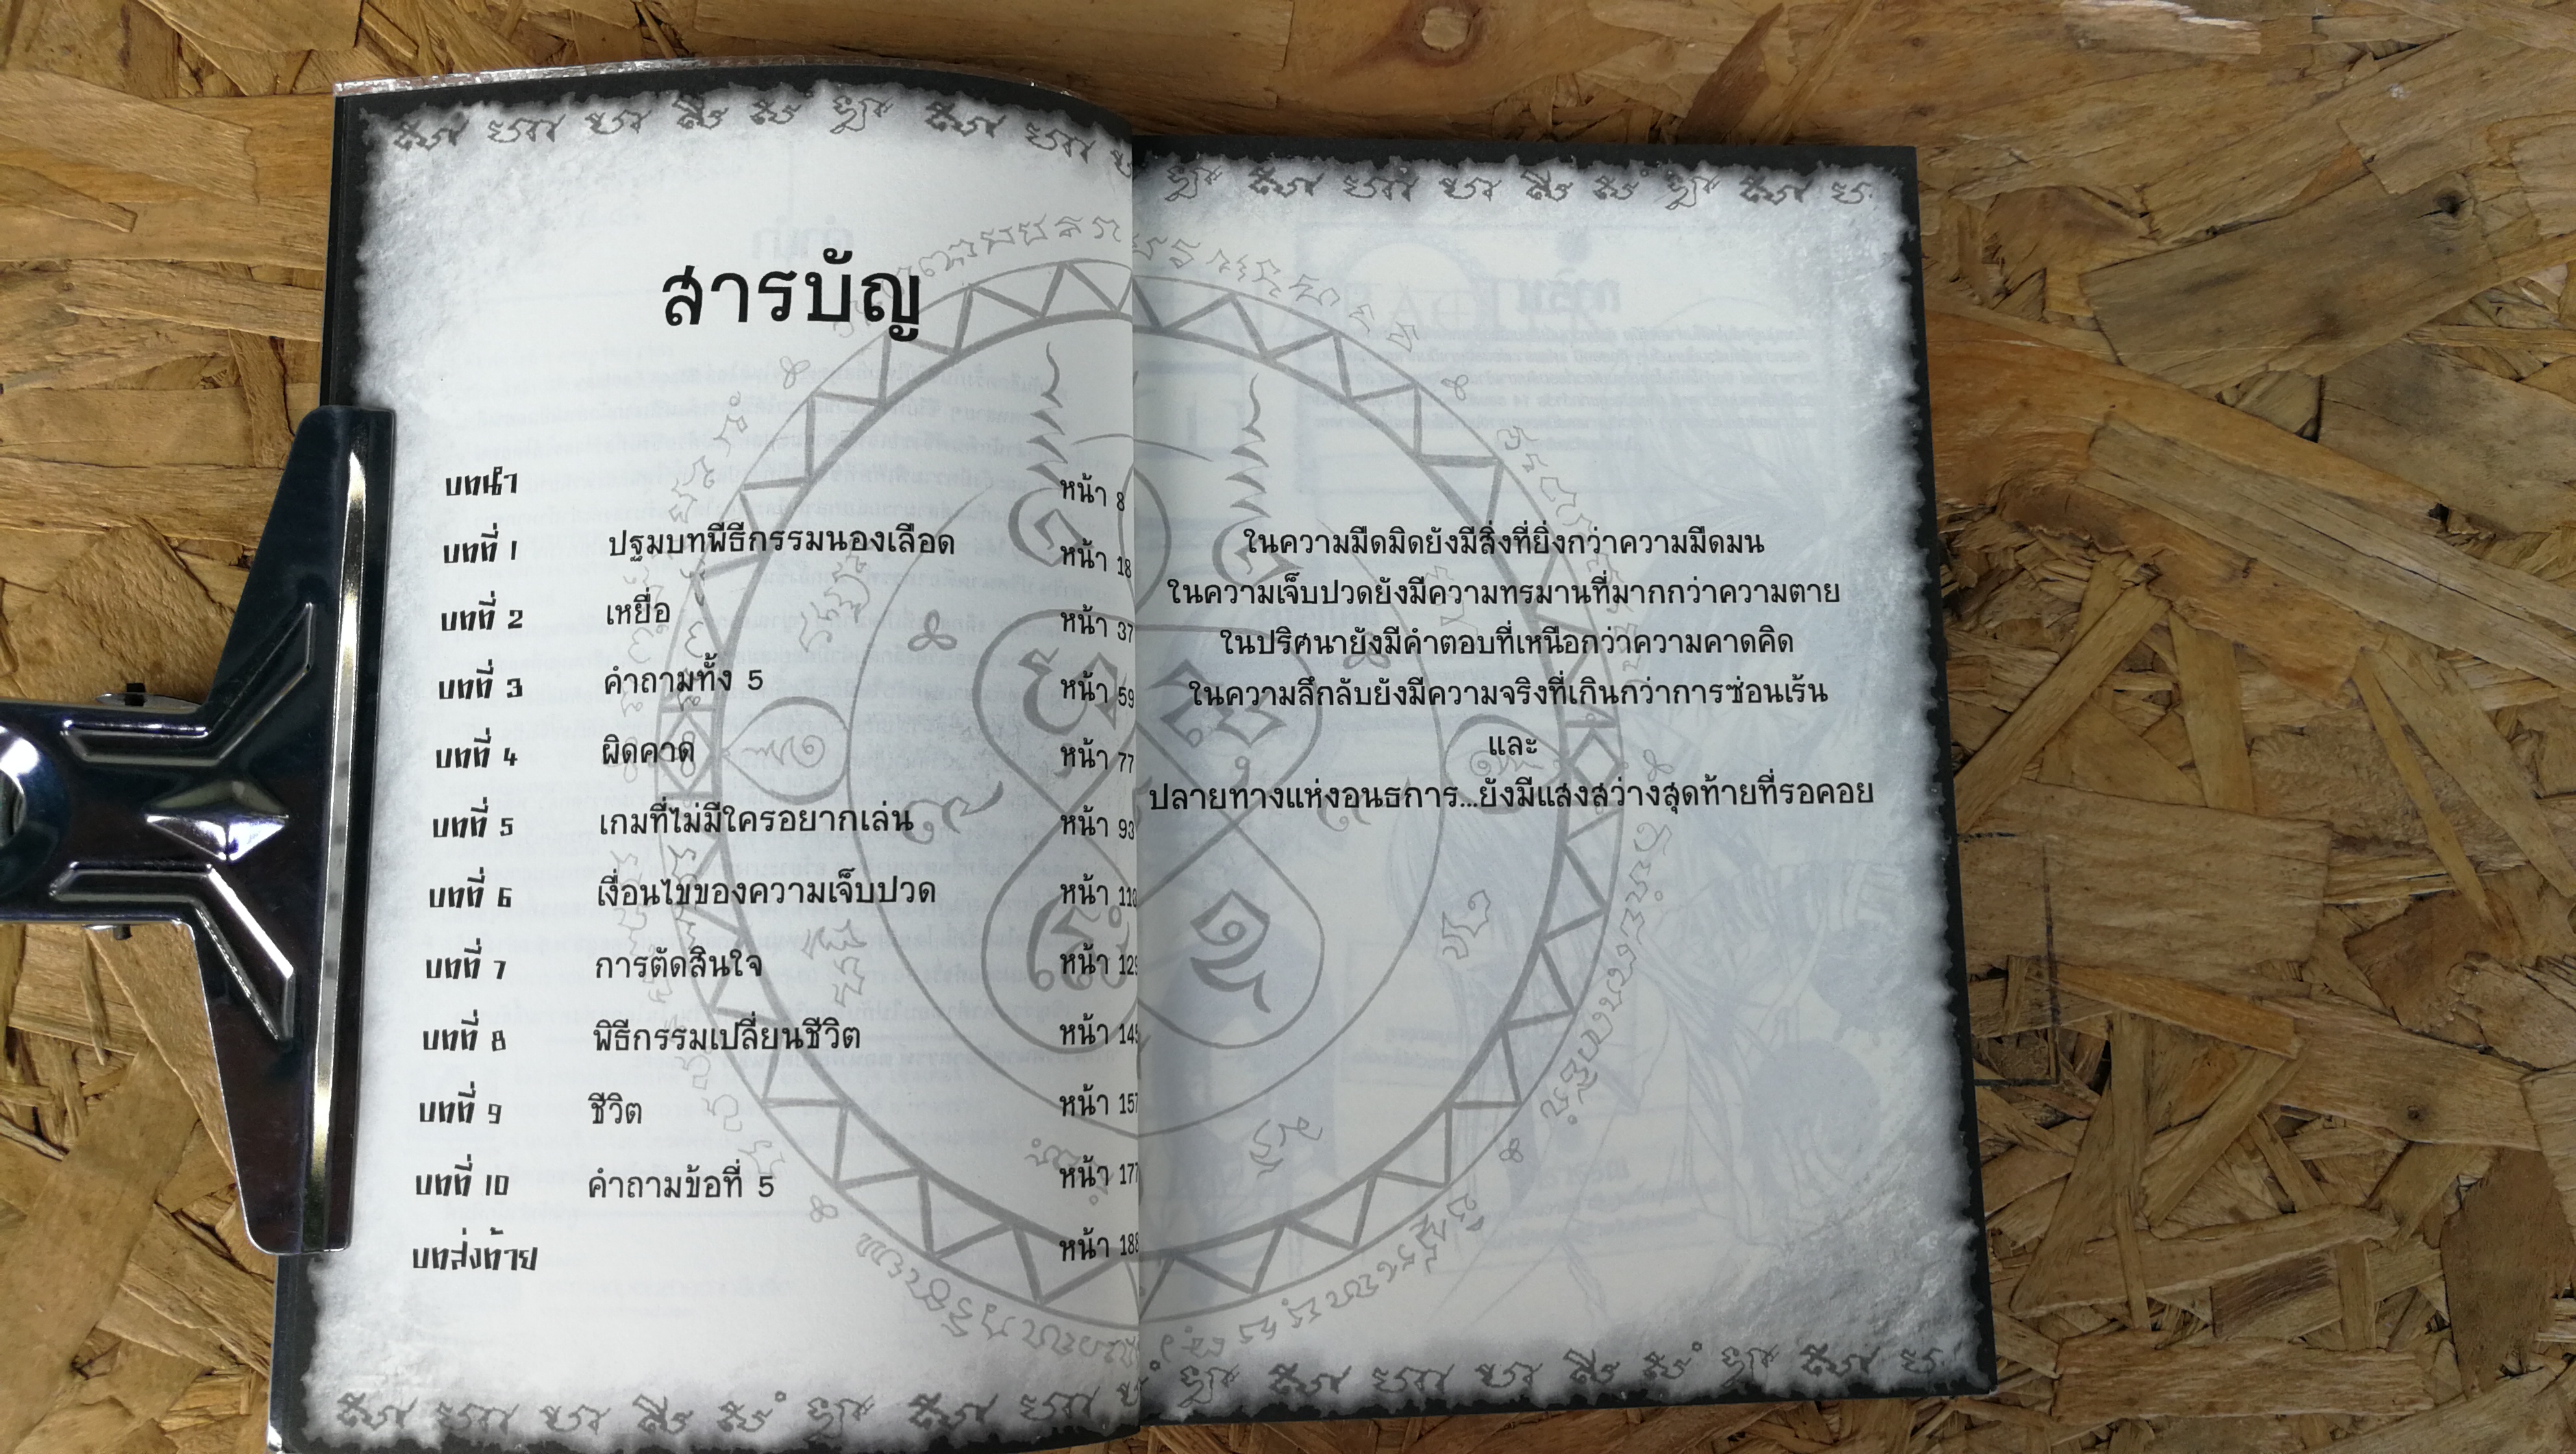 สารบัญ
บทนำ หน้า 8
บทที่ 1 ปฐมบทพิธีกรรมนองเลือด หน้า 18
บทที่ 2 เหยื่อ หน้า 37
บทที่ 3 คำถามทั้ง 5 หน้า 59
บทที่ 4 ผิดคาด หน้า 77
บทที่ 5 เกมที่ไม่มีใครอยากเล่น หน้า 93
บทที่ 6 เงื่อนไขของความเจ็บปวด หน้า 110
บทที่ 7 การตัดสินใจ หน้า 129
บทที่ 8 พิธีกรรมเปลี่ยนชีวิต หน้า 145
บทที่ 9 ชีวิต หน้า 157
บทที่ 10 คำถามข้อที่ 5 หน้า 177
บทส่งท้าย หน้า 188
ในความมืดมิดยังมีสิ่งที่ยิ่งกว่าความมืดมน
ในความเจ็บปวดยังมีความทรมานที่มากกว่าความตาย
ในปริศนายังมีคำตอบที่เหนือกว่าความคาดคิด
ในความลึกลับยังมีความจริงที่เกินกว่าการซ่อนเร้น
และ
ปลายทางแห่งอนธการ...ยังมีแสงสว่างสุดท้ายที่รอคอย